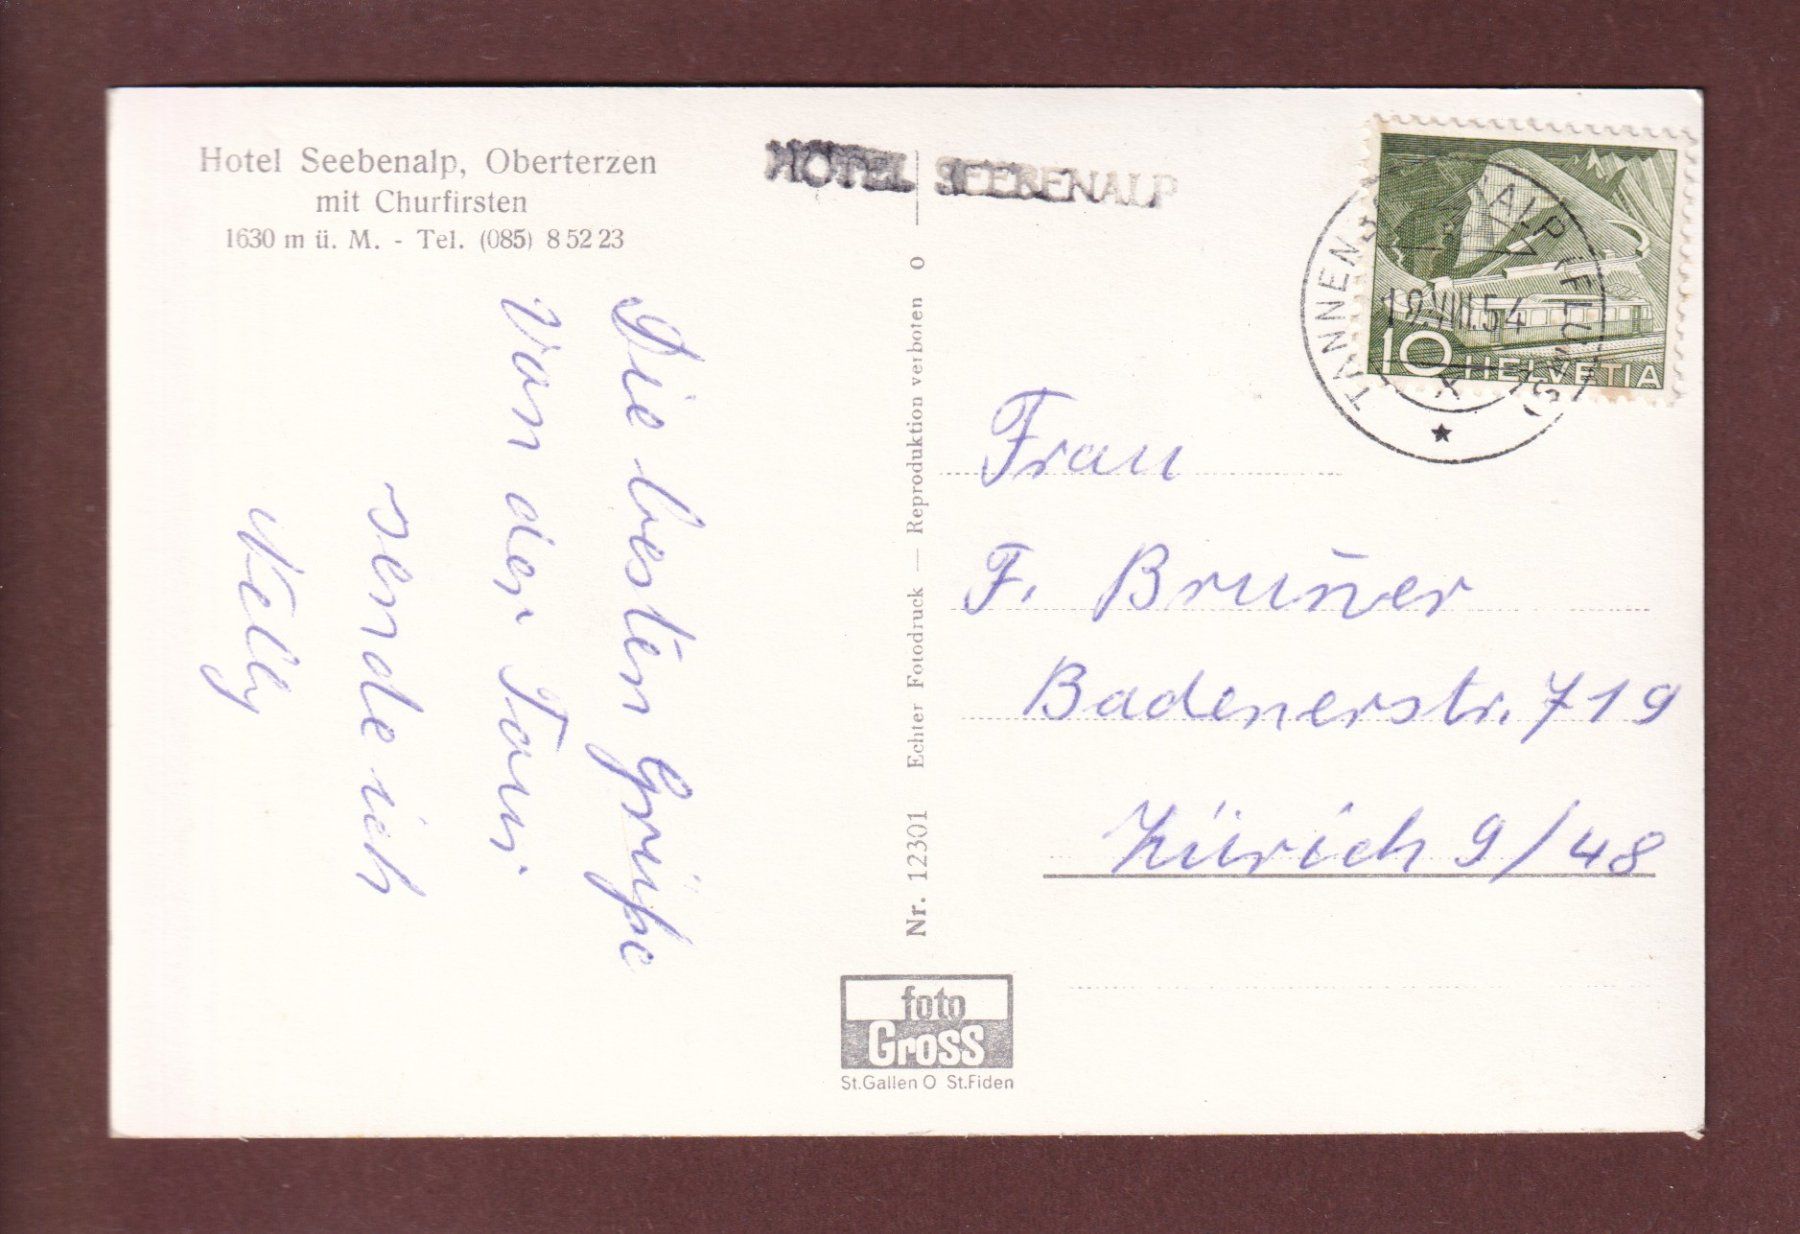 Hotel Seebenalp, Oberterzen
mit Churfirsten
1630 m ü. M. - Tel. (085) 8 52 23
HOTEL SEEBENALP
Die besten Grüße
Von der Tour.
sende ich
Nelly
Nr. 12301 Echter Fotodruck — Reproduktion verboten o
TANNENB ALP (FLUMS)
19.VIII.54
10 HELVETIA
Frau
F. Bruner
Badenerstr. 719
Zürich 9/48
foto
Gross
St.Gallen O St.Fiden